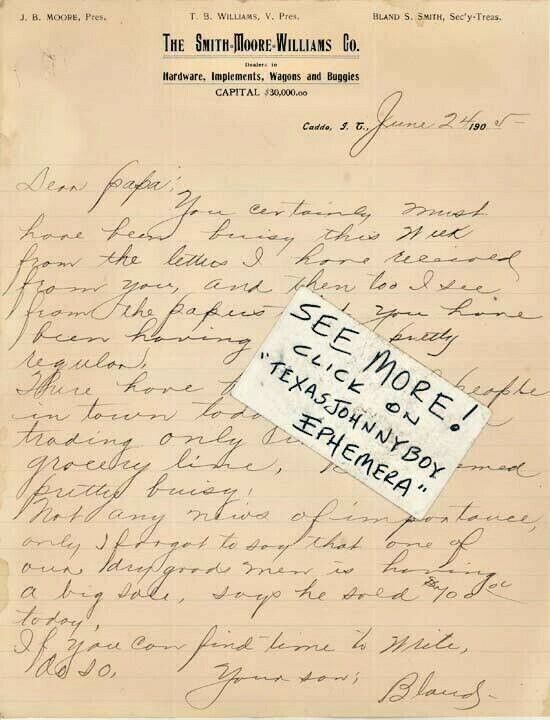 J. B. MOORE, Pres.
T. B. WILLIAMS, V. Pres.
BLAND S. SMITH, Sec'y-Treas.
THE SMITH-MOORE-WILLIAMS CO.
Dealers in
Hardware, Implements, Wagons and Buggies
CAPITAL $30,000.00
Caddo, I. T., June 24 1905
Dear Papa;
You certainly must
have been buisy this week
from the letters I have received
from you, and then too I see
from the papers you have
been having pretty
regular.
There have people
in town
trading only
grocery line,
pretty buisy.
Not any news of importance,
only I forgot to say that one of
our dry goods men is having
a big sale, says he sold
today.
If you can find time to write,
do so.
Your son;
Bland-
SEE MORE!
CLICK ON
"TEXASJOHNNYBOY
EPHEMERA"